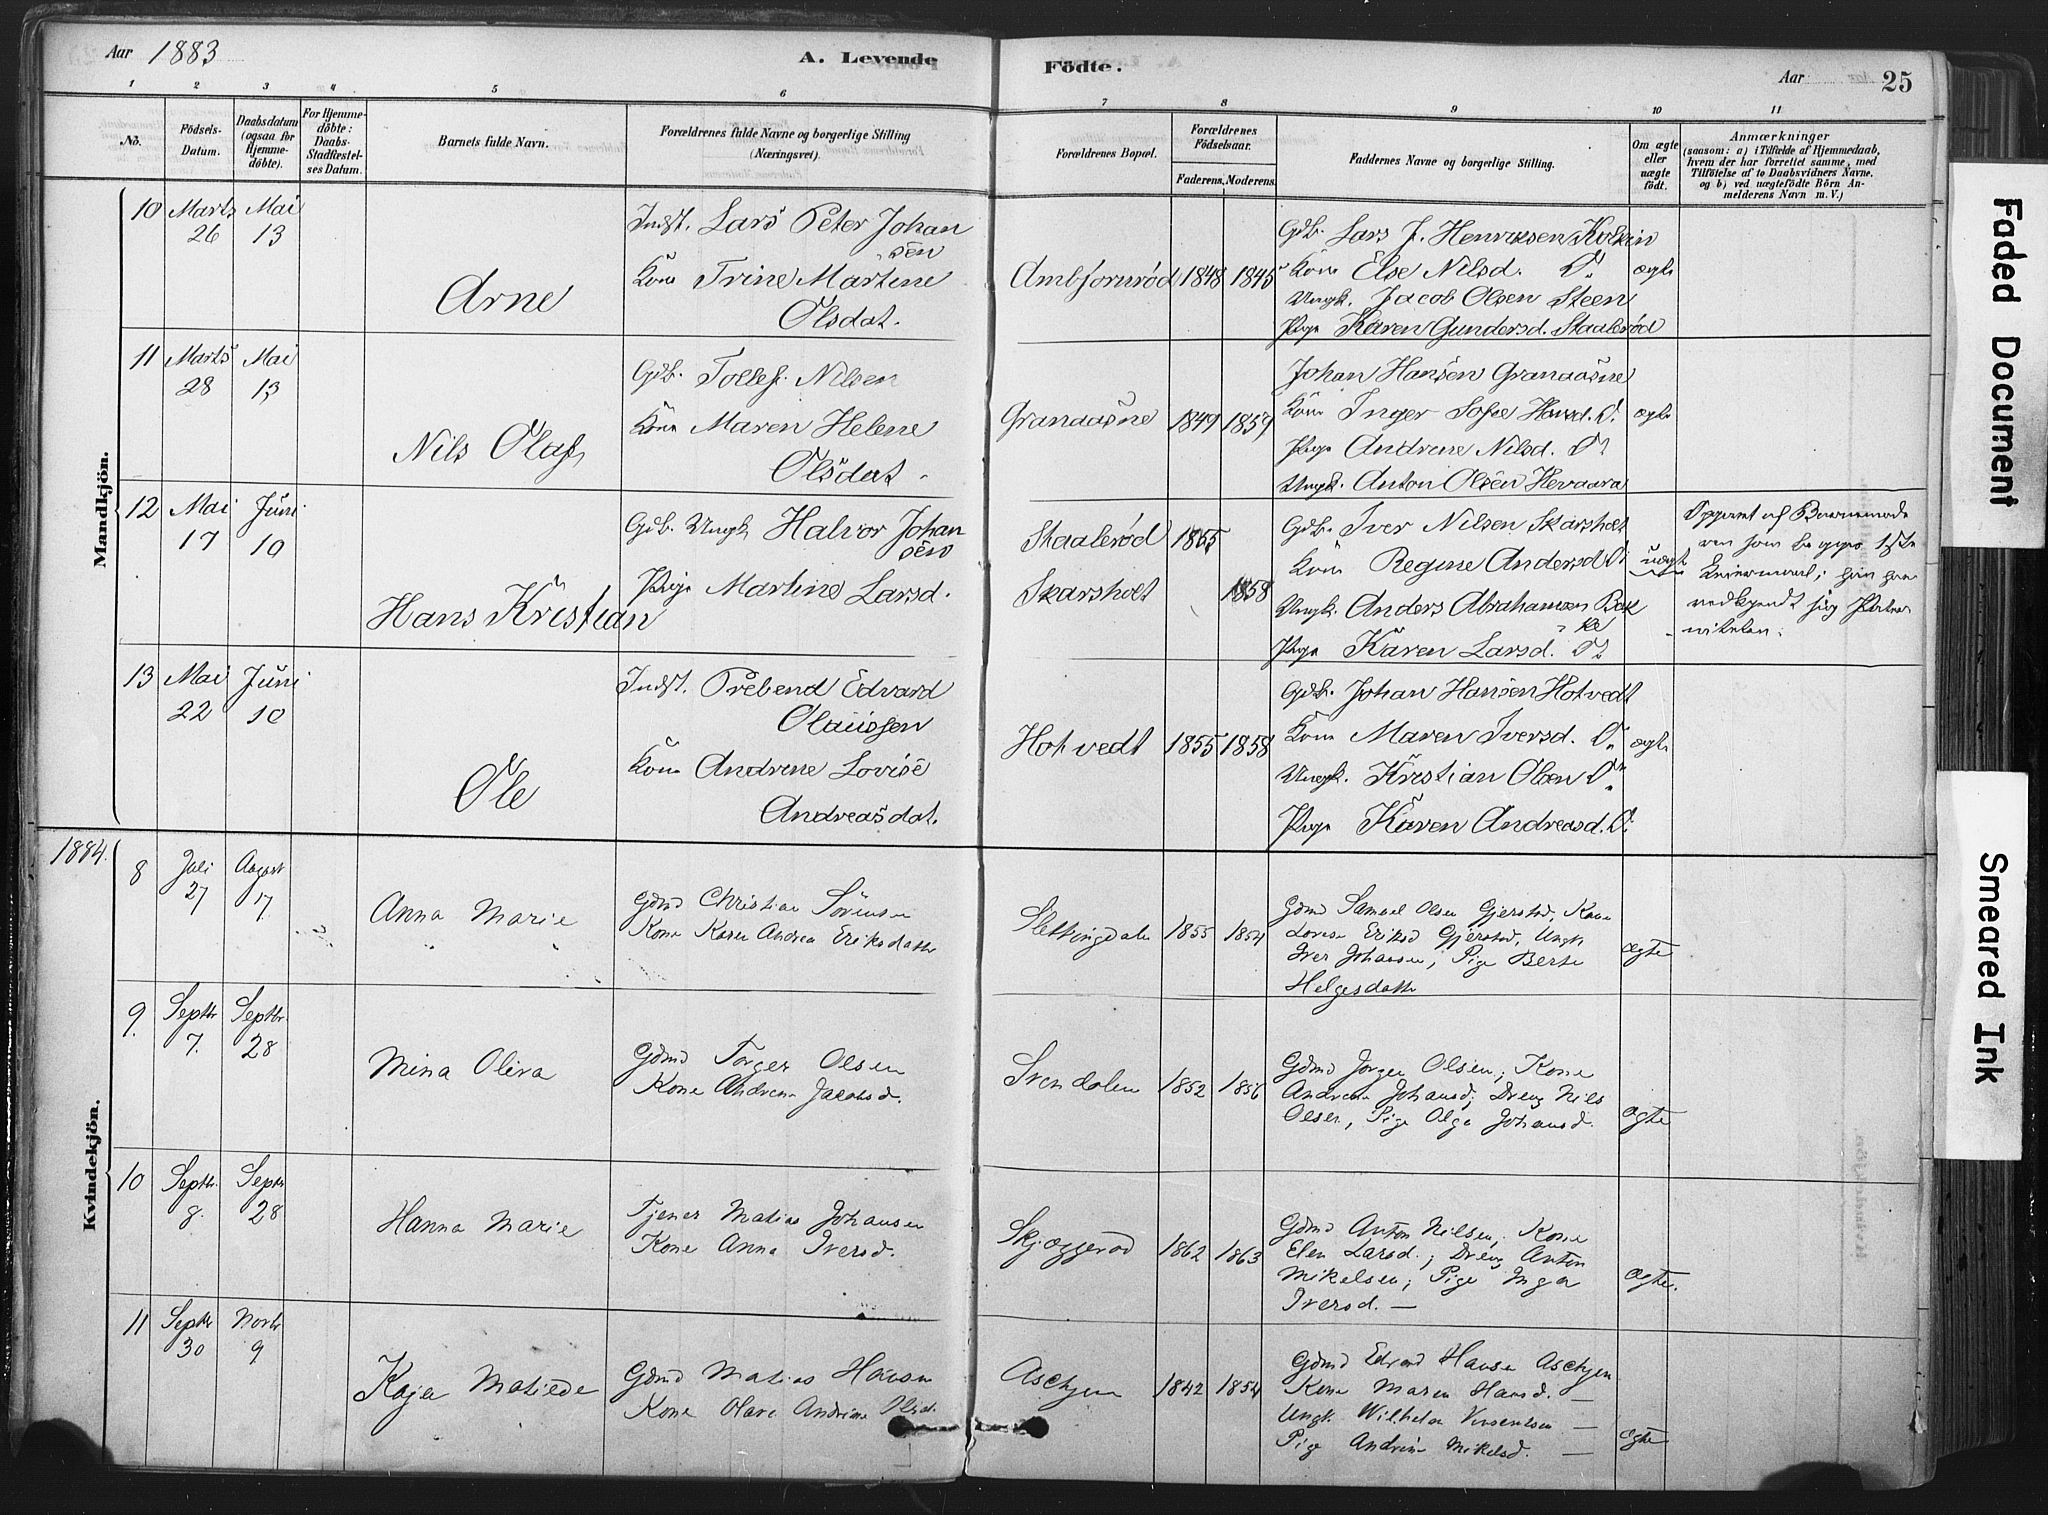 Aar 1883
A. Levende
Födte.
Aar
25
1 2 3 4 5 6 7 8 9 10 11
No.
Födsels-
Datum.
Daabsdatum
(ogsaa for
Hjemme-
döbte).
For Hjemme-
döbte:
Daabs-
Stadfæstel-
ses Datum.
Barnets fulde Navn.
Forældrenes fulde Navne og borgerlige Stilling
(Næringsvei).
Forældrenes Bopæl.
Forældrenes
Födselsaar.
Faderens. Moderens.
Faddernes Navne og borgerlige Stilling.
Om ægte
eller
uægte
födt.
Anmærkninger
(saasom: a) i Tilfælde af Hjemmedaab,
hvem der har forrettet samme, med
Tilföielse af to Daabsvidners Navne,
og b) ved uægtefödte Börn An-
melderens Navn m. V.)
Mandkjön.
10 Marts 26 Mai 13
Arne
Indst. Lars Peter Johan
sen
Kone Trine Martine
Olsdat.
Ambjornrød 1848 1845
Gdb. Lars J. Henriksen Kolkin
Kone Else Nilsd. Do.
Ungk. Jacob Olsen Steen
Pige Karen Gundersd. Staalerød
ægte
11 Marts 28 Mai 13
Nils Olaf
Gdb. Tollef Nilsen
Kone Maren Helene
Olsdat.
Granaasne 1849 1859
Johan Hansen Granaasne
Kone Inger Sofie Hansd. Do.
Pige Andrene Nilsd. Do
Ungk. Anton Olsen Hevaara
ægte
12 Mai 17 Juni 10
Hans Kristian
Gdb. Ungk Halvor Johan
sen
Pige Martine Larsd.
Staalerød 1855
Skarsholt 1858
Gdb. Iver Nilsen Skarsholt
Kone Regine Andersd Do.
Ungk. Anders Abrahamsen Bak
ke
Pige Karen Larsd. Do
uægte
Opgivet af Barnemode
ren som begges 1ste
Leiermaal; han har
vedkjendt sig Pater
niteten.
13 Mai 22 Juni 10
Ole
Indst. Prebend Edvard
Olaussen
Kone Andrine Lovise
Andreasdat.
Hotvedt 1855 1858
Gdb. Johan Hansen Hotvedt
Kone Maren Iversd. Do.
Ungk. Kristian Olsen Do.
Pige Karen Andreasd. Do.
ægte
1884.
Kvindekjön.
8 Juli 27 August 17
Anna Marie
Gdmd Christian Sörensen
Kone Karen Andrea Eriksdatter
Slettingdalen 1855 1854
Gdmd Samuel Olsen Gjerstad, Kone
Lovise Eriksd Gjerstad, Ungk
Iver Johansen, Pige Berte
Helgesdatter
ægte
9. Septbr 7. Septbr. 28
Mina Oliva
Gdmd Torger Olsen
Kone Andrine Jacobsd.
Svendalen 1852 1856
Gdmd Jörgen Olsen; Kone
Andrine Johansd; Dreng Nils
Olsen, Pige Olga Johansd.
ægte
10 Septbr. 8. Septbr 28
Hanna Marie
Tjener Matias Johansen
Kone Anna Iversd.
Skjæggerød 1862 1863
Gdmd Anton Nilsen, Kone
Elen Larsd.; Dreng Anton
Mikelsen; Pige Inga
Iversd. —
ægte.
11 Septbr 30 Novbr 9
Kaja Matilde
Gdmd Matias Hansen
Kone Olave Andrine Olsd.
Aschjem 1842 1854
Gdmd Edvard Hansen Aschjem
Kone Maren Hansd. —
Ungk. Wilhelm Vinsentsen —
Pige Andrine Mikelsd. —
ægte
Faded Document
Smeared Ink